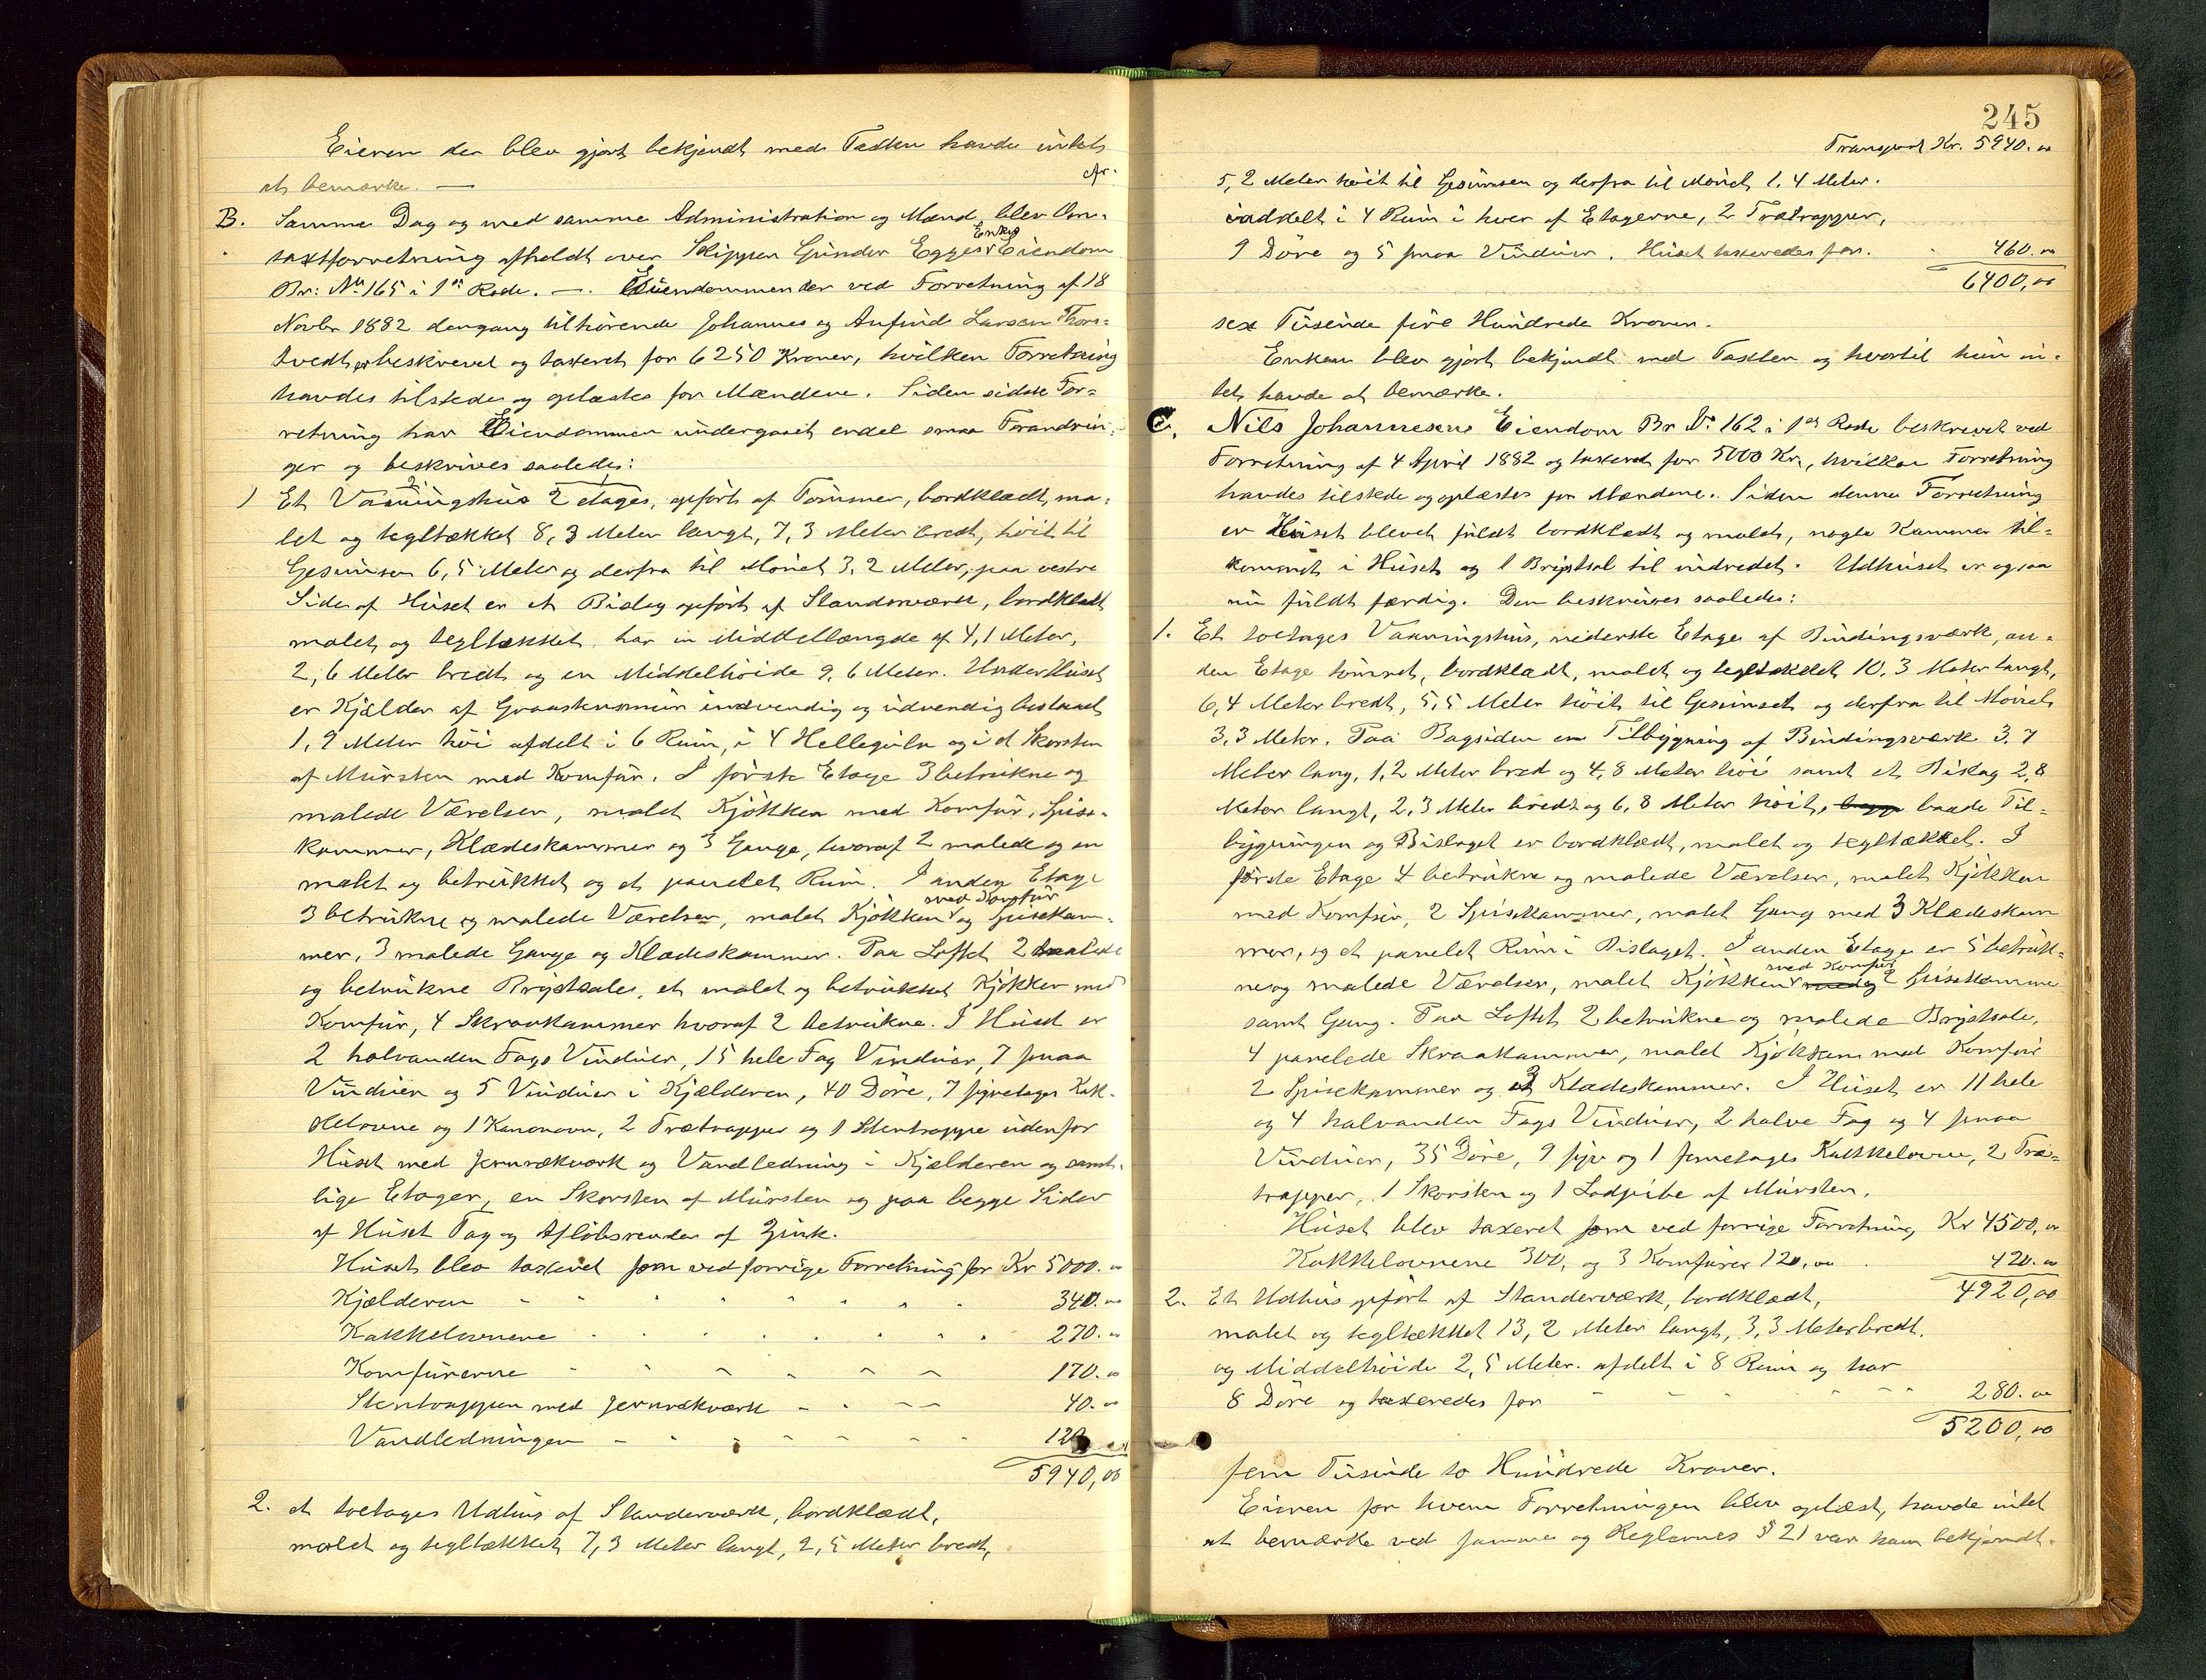 Eieren der blev gjort bekjendt med Taxten havde intet
at bemærke. —
Ar.
B. Samme Dag og med samme Administration og Mænd blev Om-
taxtforretning afholdt over Skipper Gunder Egges Enkes Eiendom
Br: No 165 i 1ste Rode. —. Eiendommen der ved Forretning af 18
Novbr 1882 dengang tilhørende Johannes og Anfind Larsen Thors-
tvedt er beskrevet og taxeret for 6250 Kroner, hvilken Forretning
havdes tilstede og oplæstes for Mændene. Siden sidste For-
retning har Eiendommen undergaaet endel smaa Forandrin-
ger og beskrives saaledes:
1) Et Vaaningshus 2 etages, opført af Tømmer, bordklædt, ma-
let og tegltækket 8,3 Meter langt, 7,3 Meter bredt, høit til
Gesimsen 6,5 Meter og derfra til Mønet 3,2 Meter, paa vestre
Side af Huset er et Bislag opført af Standerværk, bordklædt
malet og tegltækket, har en Middellængde af 4,1 Meter,
2,6 Meter bredt og en Middelhøide 9,6 Meter. Under Huset
er Kjælder af Graastensmur indvendig og udvendig
1,9 Meter høi afdelt i 6 Rum, i 4 Hellegulv og i et Skorsten
af Mursten med Komfur. I første Etage 3 betrukne og
malede Værelser, malet Kjøkken med Komfur, Spise-
kammer, Klædeskammer og 3 Gange, hvoraf 2 malede og en
malet og betrukket og et panelet Rum. I anden Etage
3 betrukne og malede Værelser, malet Kjøkken med Komfur og Spisekam-
mer, 3 malede Gange og Klædeskammer. Paa Loftet 2 malede
og betrukne Brystsale, et malet og betrukket Kjøkken med
Komfur, 4 Skraakammer hvoraf 2 betrukne. I Huset er
2 halvanden Fags Vinduer, 15 hele Fag Vinduer, 7 smaa
Vinduer og 5 Vinduer i Kjælderen, 40 Døre, 7 syvetages Kak-
kelovne og 1 Kanonovn, 2 Trætrapper og 1 Stentrappe udenfor
Huset med Jernrækværk og Vandledning i Kjælderen og samt-
lige Etager, en Skorsten af Mursten og paa begge Sider
af Huset Tag og Afløbsrender af Zink.
Huset blev taxeret som ved forrige Forretning for Kr 5000.00
Kjælderen 340.00
Kakkelovnene 270.00
Komfurerne 170.00
Stentrappen med Jernrækværk 40.00
Vandledningen 120.00
5940,00
2. et toetages Udhus af Standerværk, bordklædt,
malet og tegltækket 7,3 Meter langt, 2,5 Meter bredt,
245
Transport Kr. 5940.00
5,2 Meter høit til Gesimsen og derfra til Mønet 1,4 Meter.
inddelt i 4 Rum i hver af Etagerne, 2 Trætrapper,
9 Døre og 5 smaa Vinduer. Huset taxeredes for. 460.00
6400,00
sex Tusinde fire Hundrede Kroner.
Enken blev gjort bekjendt med Taxten og hvortil hun in-
tet havde at bemærke.
C. Nils Johannesens Eiendom Br No 162 i 1ste Rode beskrevet ved
Forretning af 4 April 1882 og taxeret for 5000 Kr., hvilken Forretning
havdes tilstede og oplæstes for Mændene. Siden denne Forretning
er Huset blevet fuldt bordklædt og malet, nogle Kammer til-
kommet i Huset og 1 Brystsal til indredet. Udhuset er ogsaa
nu fuldt færdig. Den beskrives saaledes:
1. Et toetages Vaaningshus, nederste Etage af Bindingsværk, an-
den Etage tømret, bordklædt, malet og tegltækket 10,3 Meter langt,
6,4 Meter bredt, 5,5 Meter høit til Gesimset og derfra til Mønet
3,3 Meter. Paa Bagsiden en Tilbygning af Bindingsværk 3,7
Meter lang, 1,2 Meter bred og 4,8 Meter høi samt et Bislag 2,8
Meter langt, 2,3 Meter bredt og 6,8 Meter høit, baade Til-
bygningen og Bislaget er bordklædt, malet og tegltækket. I
første Etage 4 betrukne og malede Værelser, malet Kjøkken
med Komfur, 2 Spisekammer, malet Gang med 3 Klædeskam
mer, og et panelet Rum i Bislaget. I anden Etage er 5 betruk-
ne og malede Værelser, malet Kjøkken med Komfur 2 Spisekammer
samt Gang. Paa Loftet 2 betrukne og malede Brystsale,
4 panelede Skraakammer, malet Kjøkken med Komfur
2 Spisekammer og 3 Klædeskammer. I Huset er 11 hele
og 4 halvanden Fags Vinduer, 2 halve Fag og 4 smaa
Vinduer, 35 Døre, 9 syv og 1 femetages Kakkelovne, 2 Træ-
trapper, 1 Skorsten og 1 Lodpibe af Mursten.
Huset blev taxeret som ved forrige Forretning Kr 4500,00
Kakkelovnene 300, og 3 Komfurer 120,00 420.00
4920,00
2. Et Udhus opført af Standerværk, bordklædt,
malet og tegltækket 13,2 Meter langt, 3,3 Meter bredt,
og Middelhøide 2,5 Meter. afdelt i 8 Rum og har
8 Døre og taxeredes for 280.00
5200,00
fem Tusinde to Hundrede Kroner.
Eieren for hvem Forretningen blev oplæst, havde intet
at bemærke ved samme og Reglernes § 21 var ham bekjendt.